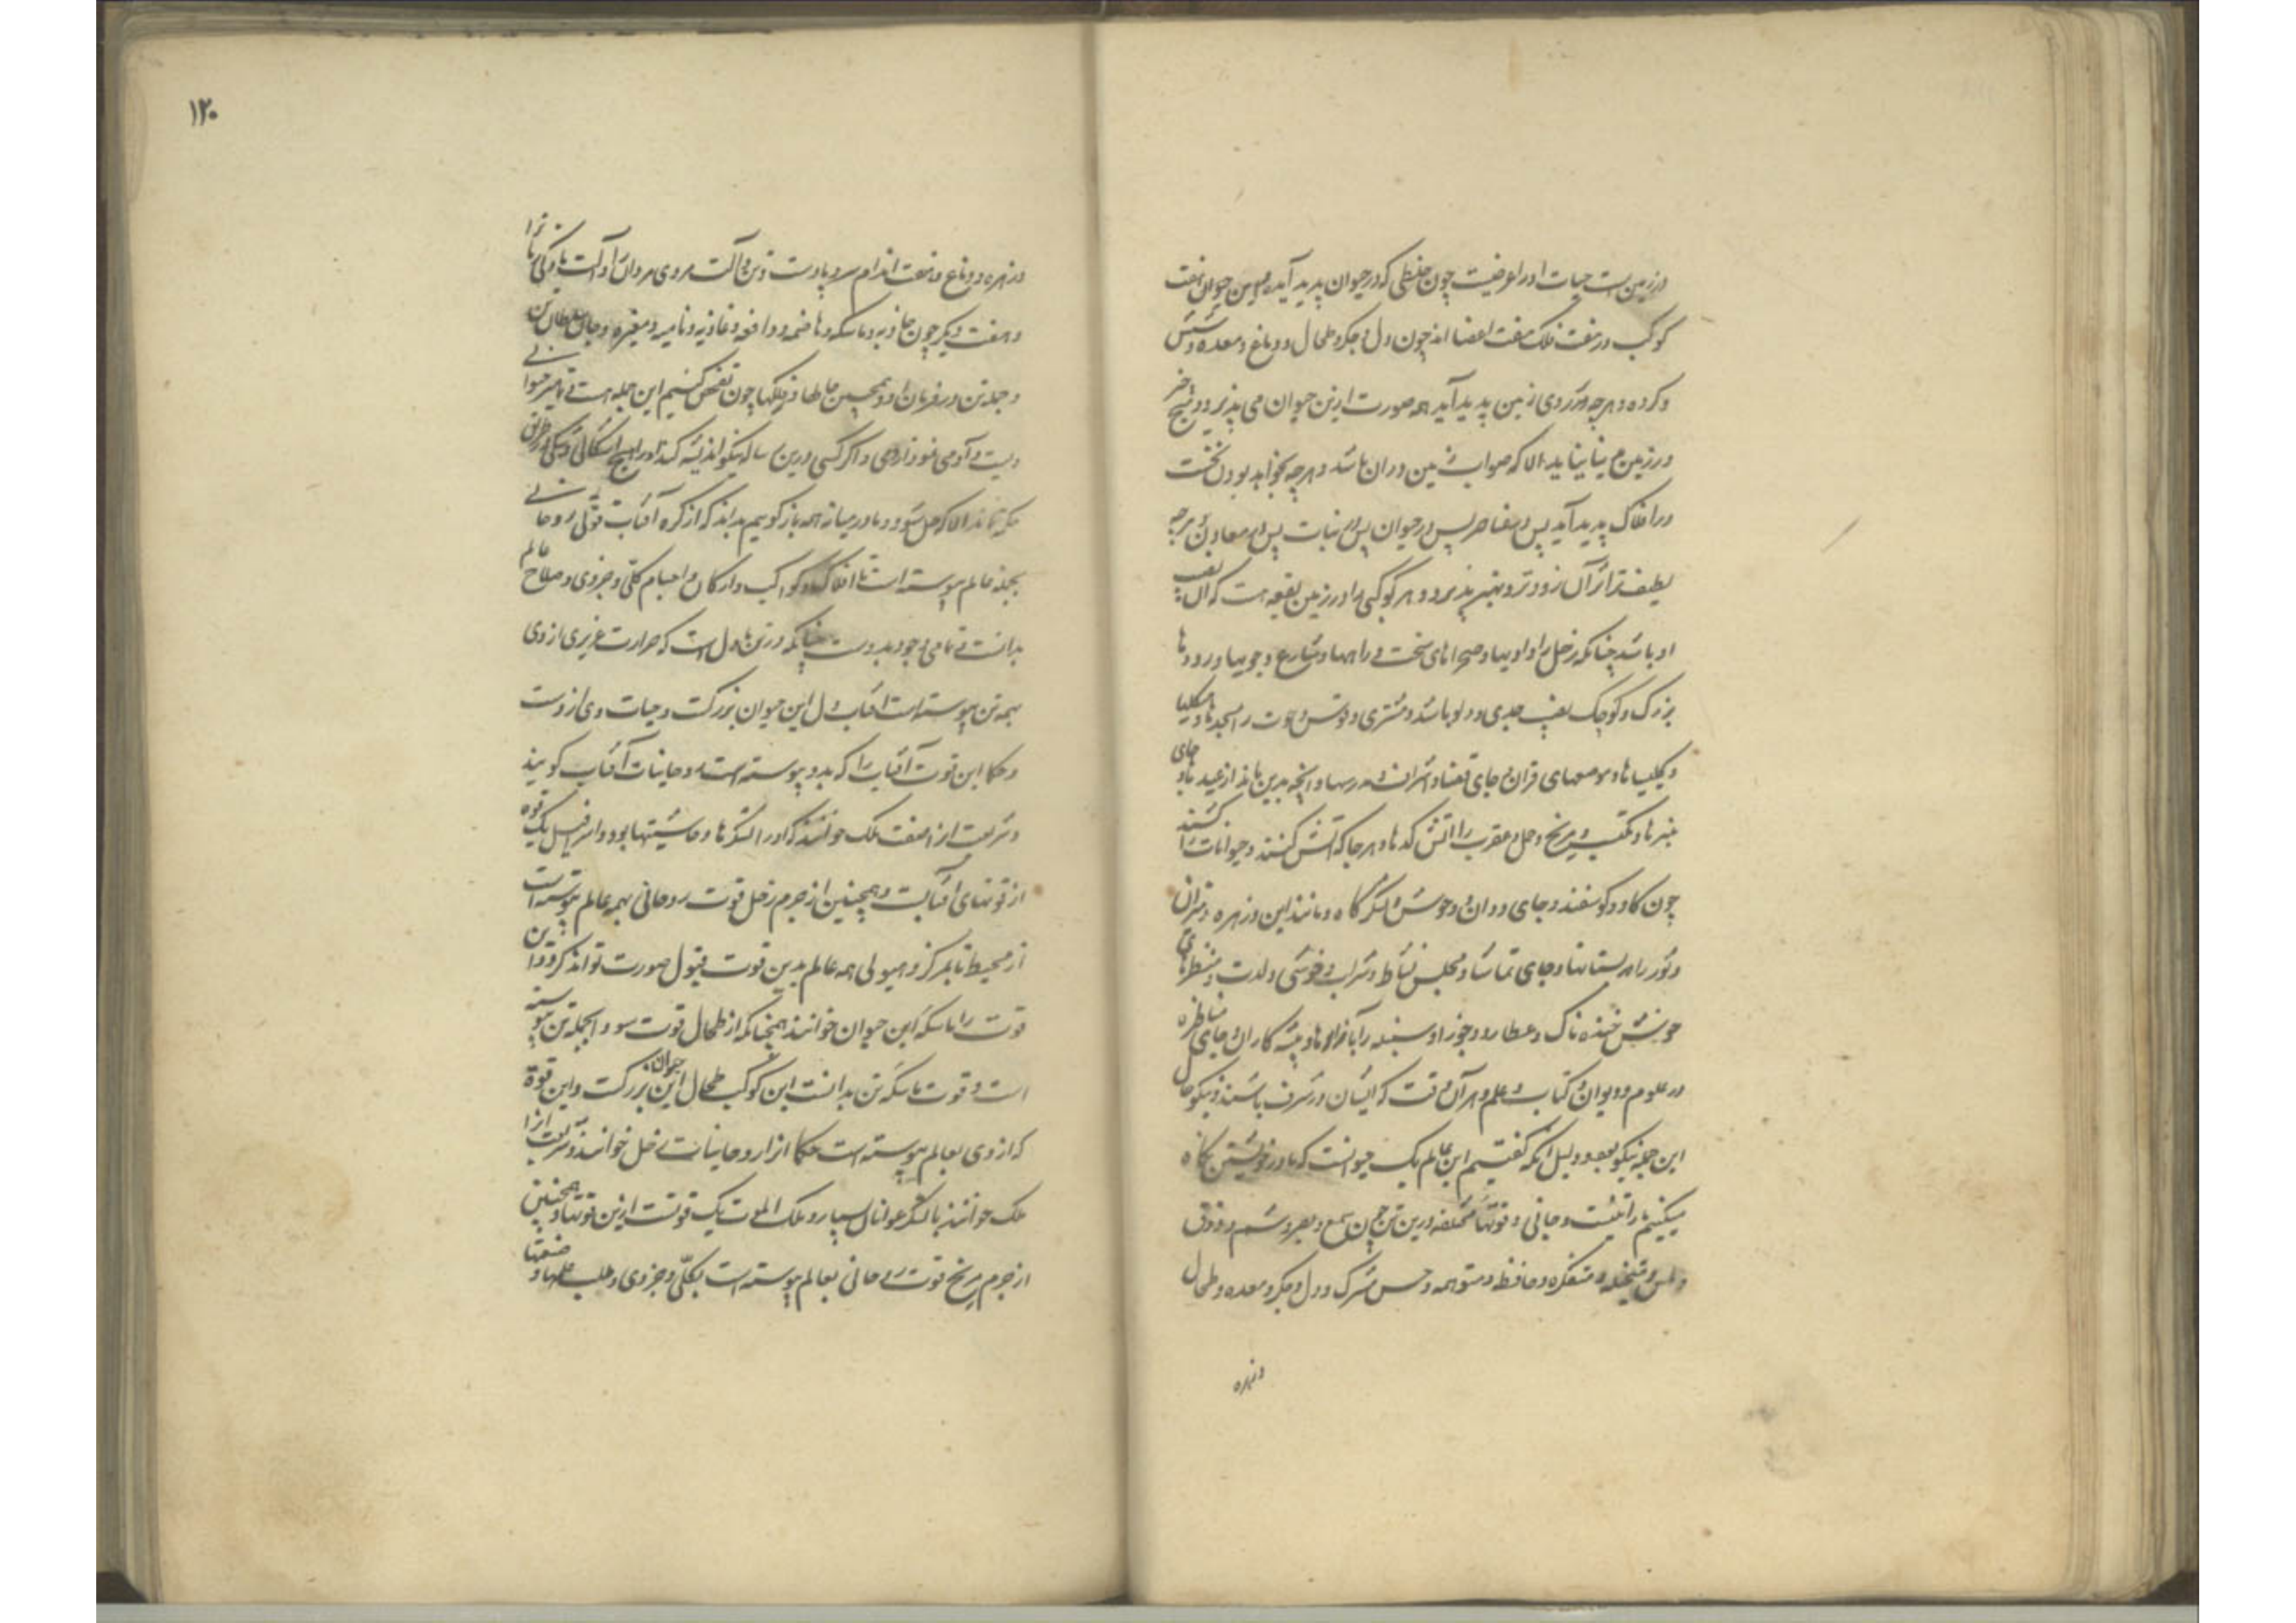 در زمین است حیات او را عرضیست چون خلطی که در حیوان پدید آید و این حیوان هفت
کوکب در هفت فلک هفت اعضا اند چون دل و جگر و طحال و دماغ و معده و شش
و کرده و هرچه بر روی زمین پدید آید همه صورت ازین حیوان می پذیرد و هیچ چیز
در زمین الا که در ان باشد و هرچه بخواهد بودن نخست
در افلاک پدید آید پس در عناصر پس در حیوان پس در نبات پس در معادن و هرچه
لطیف تر اثر آن زودتر و بهتر پذیرد و هر کوکبی را در زمین بقعه است که آن نصیب
او باشد چنانکه زحل را وادیها و صحراهای سخت و راهها و شارع و جویها و رودها
بزرگ و کوچک نصیب جدی و دلو باشد و مشتری و قوس و حوت را مسجدها و هیکلها
و کلیساها و قران و جای قضا و اشراف و مدرسها و آنچه بدین ماند از عیدها و جای
منبرها و مکتب و مریخ و حمل و عقرب را آتش کدها و هر جا که آتش کنند و حیوانات را کشند
چون گاو و گوسفند و جای ددان و وحوش و لشکرگاه و مانند این و زهره و میزان
و ثور را بستانها و جای تماشا و مجلس نشاط و شراب و خوشی و لذت و منظرهای
خوش خنده ناک و عطارد و جوزا و سنبله را و پیشه کاران و جای مناظره
در علوم و دیوان و کتاب و علم و هر آن وقت که ایشان در شرف باشند و نیکو حال
این جمله نیکو بود و دلیل آنکه گفتیم این عالم یک حیوانست که ما در خویشتن نگاه
میکنیم ما را تنیست و جانی و قوتها مختلفه درین تن چون سمع و بصر و شم و ذوق
و لمس و متخیله و متفکره و حافظه و متوهمه و حس مشترک و دل و جگر و معده و طحال
و زهره
۱۲۰
و زهره و دماغ و هفت اندام سر و پا و دست و تن و آلت مردی مردان را و آلت مادگی مادگان را
و هفت دیگر چون جاذبه و ماسکه و هاضمه و دافعه و غاذیه و نامیه و مغیره و جان سلطان تن
و جمله تن در فرمان او و همچنین در فلکها چون تفحص کنیم این جمله هست
و آدمی و اگر کسی درین نیکو اندیشه کند او را هیچ اشکالی و شکی
نماند الا که حل شود و ما در میانه همه باز گوییم بداند که از کره آفتاب قوتی روحانی
بجمله عالم پیوسته است با افلاک و کواکب و ارکان و اجسام کلی و جزوی و صلاح عالم
بدانست و تمامی وجود بدوست چنانکه در تن ما دل است که حرارت غریزی از وی
بهمه تن پیوسته است آفتاب دل این حیوان بزرگست و حیات وی ازوست
و حکما این قوت آفتاب را که بدو پیوسته است روحانیات آفتاب گویند
و شریعت ازین صفت ملک خوانند که او را لشکرها و حاشیتها بود و اسرافیل یک قوه
از قوتهای آفتابست و همچنین از جرم زحل قوت روحانی بهمه عالم پیوسته است
از محیط تا بمرکز و هیولی همه عالم بدین قوت قبول صورت تواند کرد و این
قوت را ماسکه این حیوان خوانند همچنانکه از طحال قوت سودا بجمله تن پیوسته
است و قوت ماسکه تن بدانست این کوکب طحال این حیوان بزرگست و این قوة
که از وی بعالم پیوسته است حکما آنرا روحانیات زحل خوانند و شریعت آنرا
ملک خوانند با لشکر و اعوان بسیار و ملک الموت یک قوتست ازین قوتها و همچنین
از جرم مریخ قوت روحانی بعالم پیوسته است بکلی و جزوی و طلب علمها و صنعتها